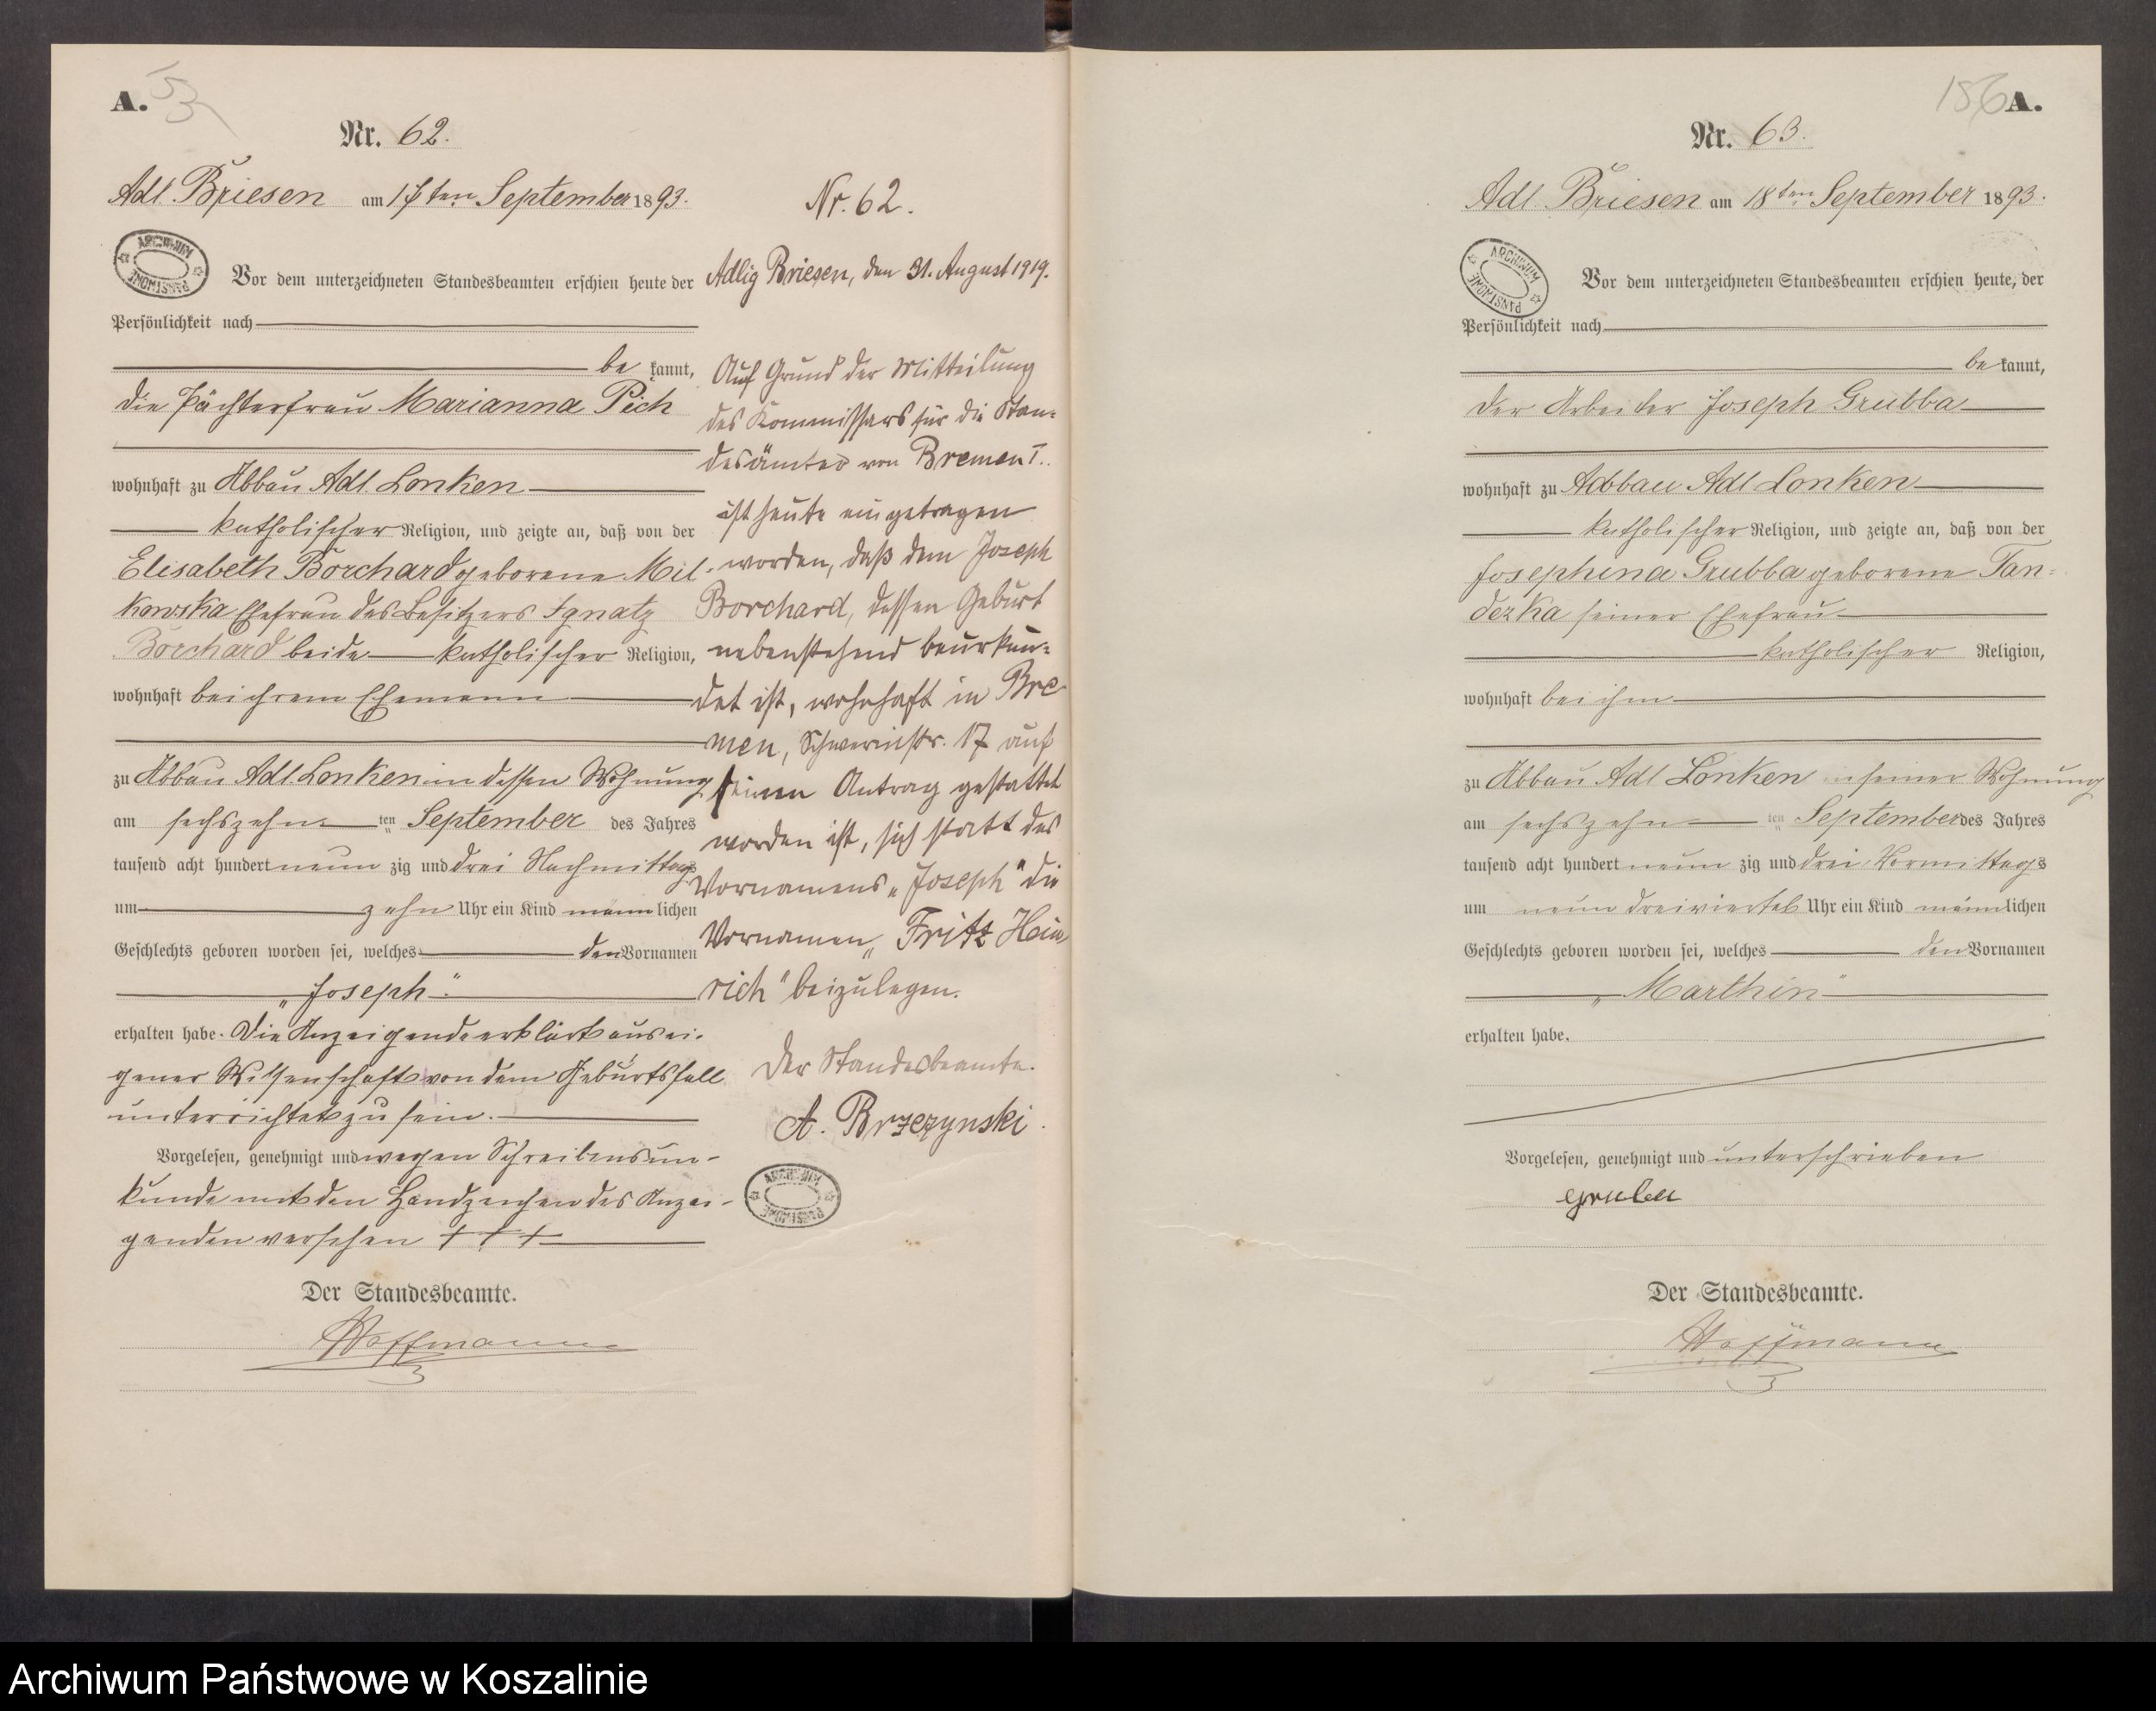 A.
53
Nr. 62.
Adl. Briesen am ten September 1893.
ARCHIWUM PAŃSTWOWE
Vor dem unterzeichneten Standesbeamten erschien heute der
Persönlichkeit nach
be kannt,
die Pächterfrau Marianna Pich
wohnhaft zu Abbau Adl. Lonken
katholischer Religion, und zeigte an, daß von der
Elisabeth Borchard geborene Mil-
kowska Ehefrau des Besitzers Ignatz
Borchard beide katholischer Religion,
wohnhaft bei ihrem Ehemann
zu Abbau Adl. Lonken in dessen Wohnung
am sechszehn ten September des Jahres
tausend acht hundert neun zig und drei Nachmittags
um zehn Uhr ein Kind männlichen
Geschlechts geboren worden sei, welches den Vornamen
„Joseph“
erhalten habe. Die Anzeigende erklärt aus ei-
gener Wissenschaft von dem Geburtsfall
unterrichtet zu sein.
Vorgelesen, genehmigt und wegen Schreibensun-
kunde mit den Handzeichen des Anzei-
genden versehen + + +
Der Standesbeamte.
Hoffmann
Nr. 62.
Adlig Briesen, den 31. August 1919.
Auf Grund der Mitteilung
des Kommissars für die Stan-
desämter von Bremen I.
ist heute eingetragen
worden, daß dem Joseph
Borchard, dessen Geburt
nebenstehend beurkun-
det ist, wohnhaft in Bre
men, Schwerinstr. 17 auf
seinen Antrag gestattet
worden ist, sich statt des
Vornamens „Joseph“ die
Vornamen „Fritz Hein
rich“ beizulegen.
Der Standesbeamte.
A. Brzezynski.
ARCHIWUM PAŃSTWOWE
186 A.
Nr. 63.
Adl. Briesen am 18ten September 1893.
ARCHIWUM PAŃSTWOWE
Vor dem unterzeichneten Standesbeamten erschien heute, der
Persönlichkeit nach
be kannt,
der Arbeiter Joseph Grubba
wohnhaft zu Abbau Adl Lonken
katholischer Religion, und zeigte an, daß von der
Josephina Grubba geborene Tan-
dezka seiner Ehefrau
katholischer Religion,
wohnhaft bei ihm
zu Abbau Adl Lonken in seiner Wohnung
am sechszehn ten September des Jahres
tausend acht hundert neun zig und drei Vormittags
um neun dreiviertel Uhr ein Kind männlichen
Geschlechts geboren worden sei, welches den Vornamen
„Marthin“
erhalten habe.
Vorgelesen, genehmigt und unterschrieben
Der Standesbeamte.
Hoffmann
Archiwum Państwowe w Koszalinie